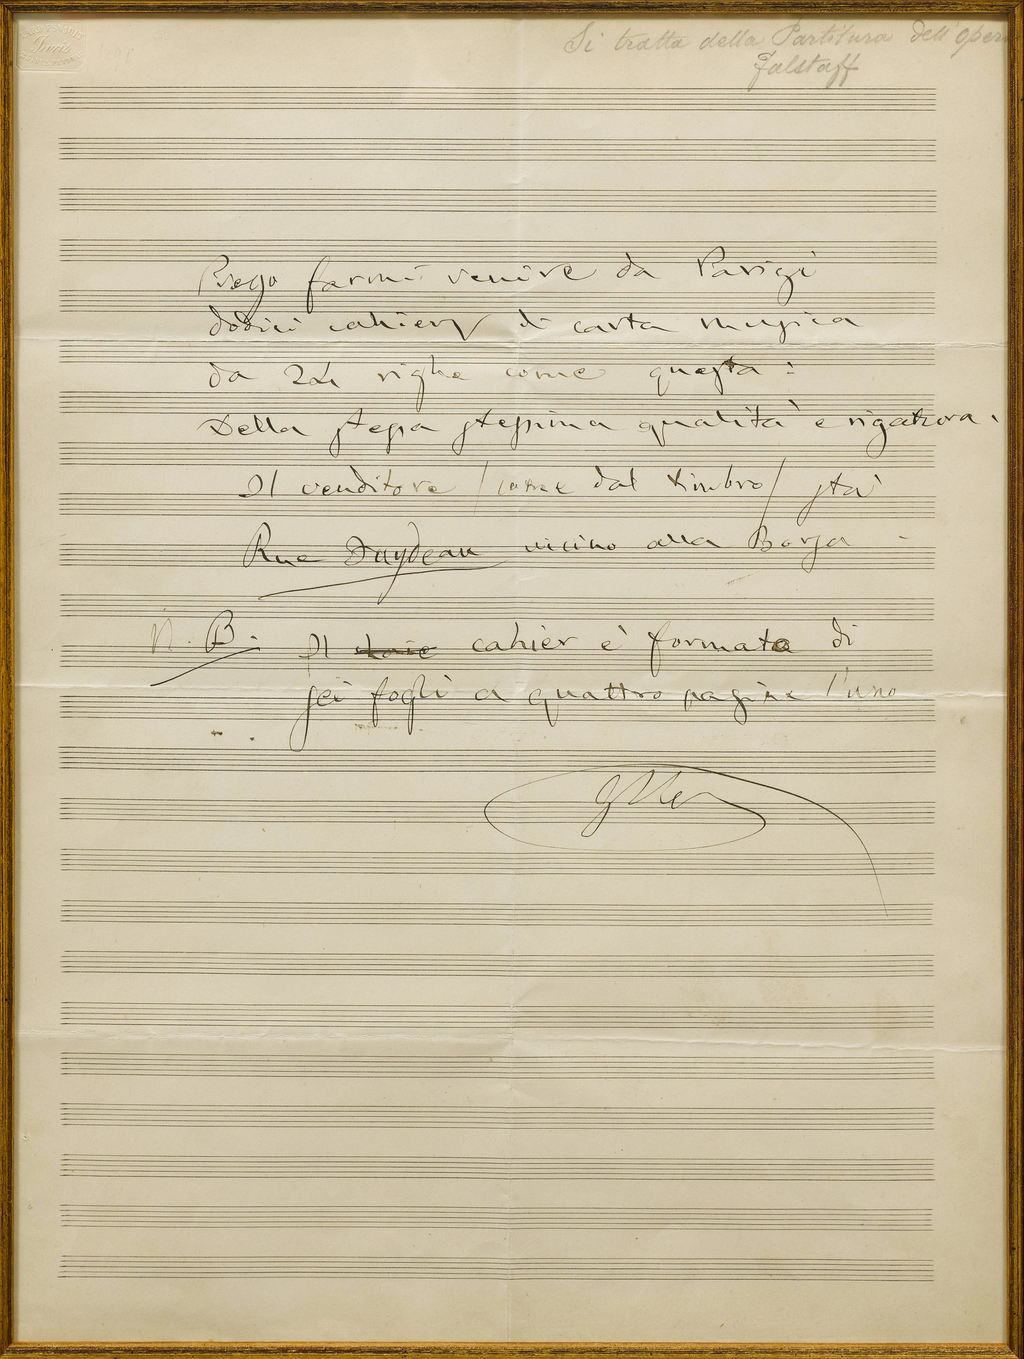 Si tratta della Partitura dell'opera
Falstaff
Prego farmi venire da Parigi
dodici cahiers di carta musica
da 24 righe come questa:
Della stessa stessissima qualità e rigatura.
Il venditore / come dal timbro / sta
Rue Fuydeau vicino alla Borsa -
N. B. Il cahier è formato di
sei fogli a quattro pagine l'uno
GVer